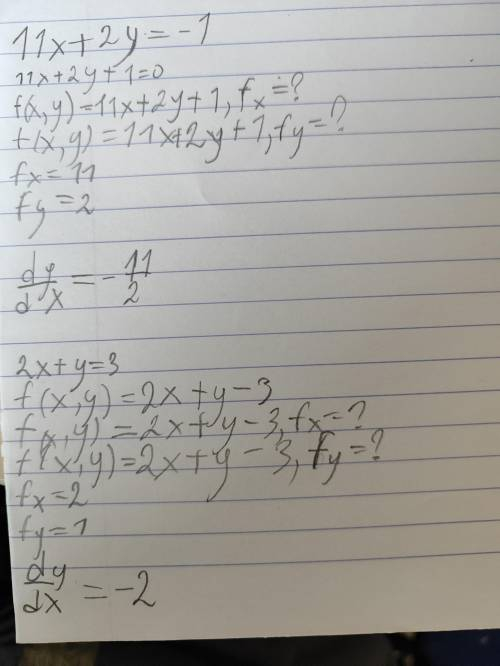 11x+2y=-1
11x+2y+1=0
f(x,y)=11x+2y+1, fx=?
f(x,y)=11x+2y+1, fy=?
fx=11
fy=2
dy/dx=-11/2
2x+y=3
f(x,y)=2x+y-3
f(x,y)=2x+y-3, fx=?
f(x,y)=2x+y-3, fy=?
fx=2
fy=1
dy/dx=-2